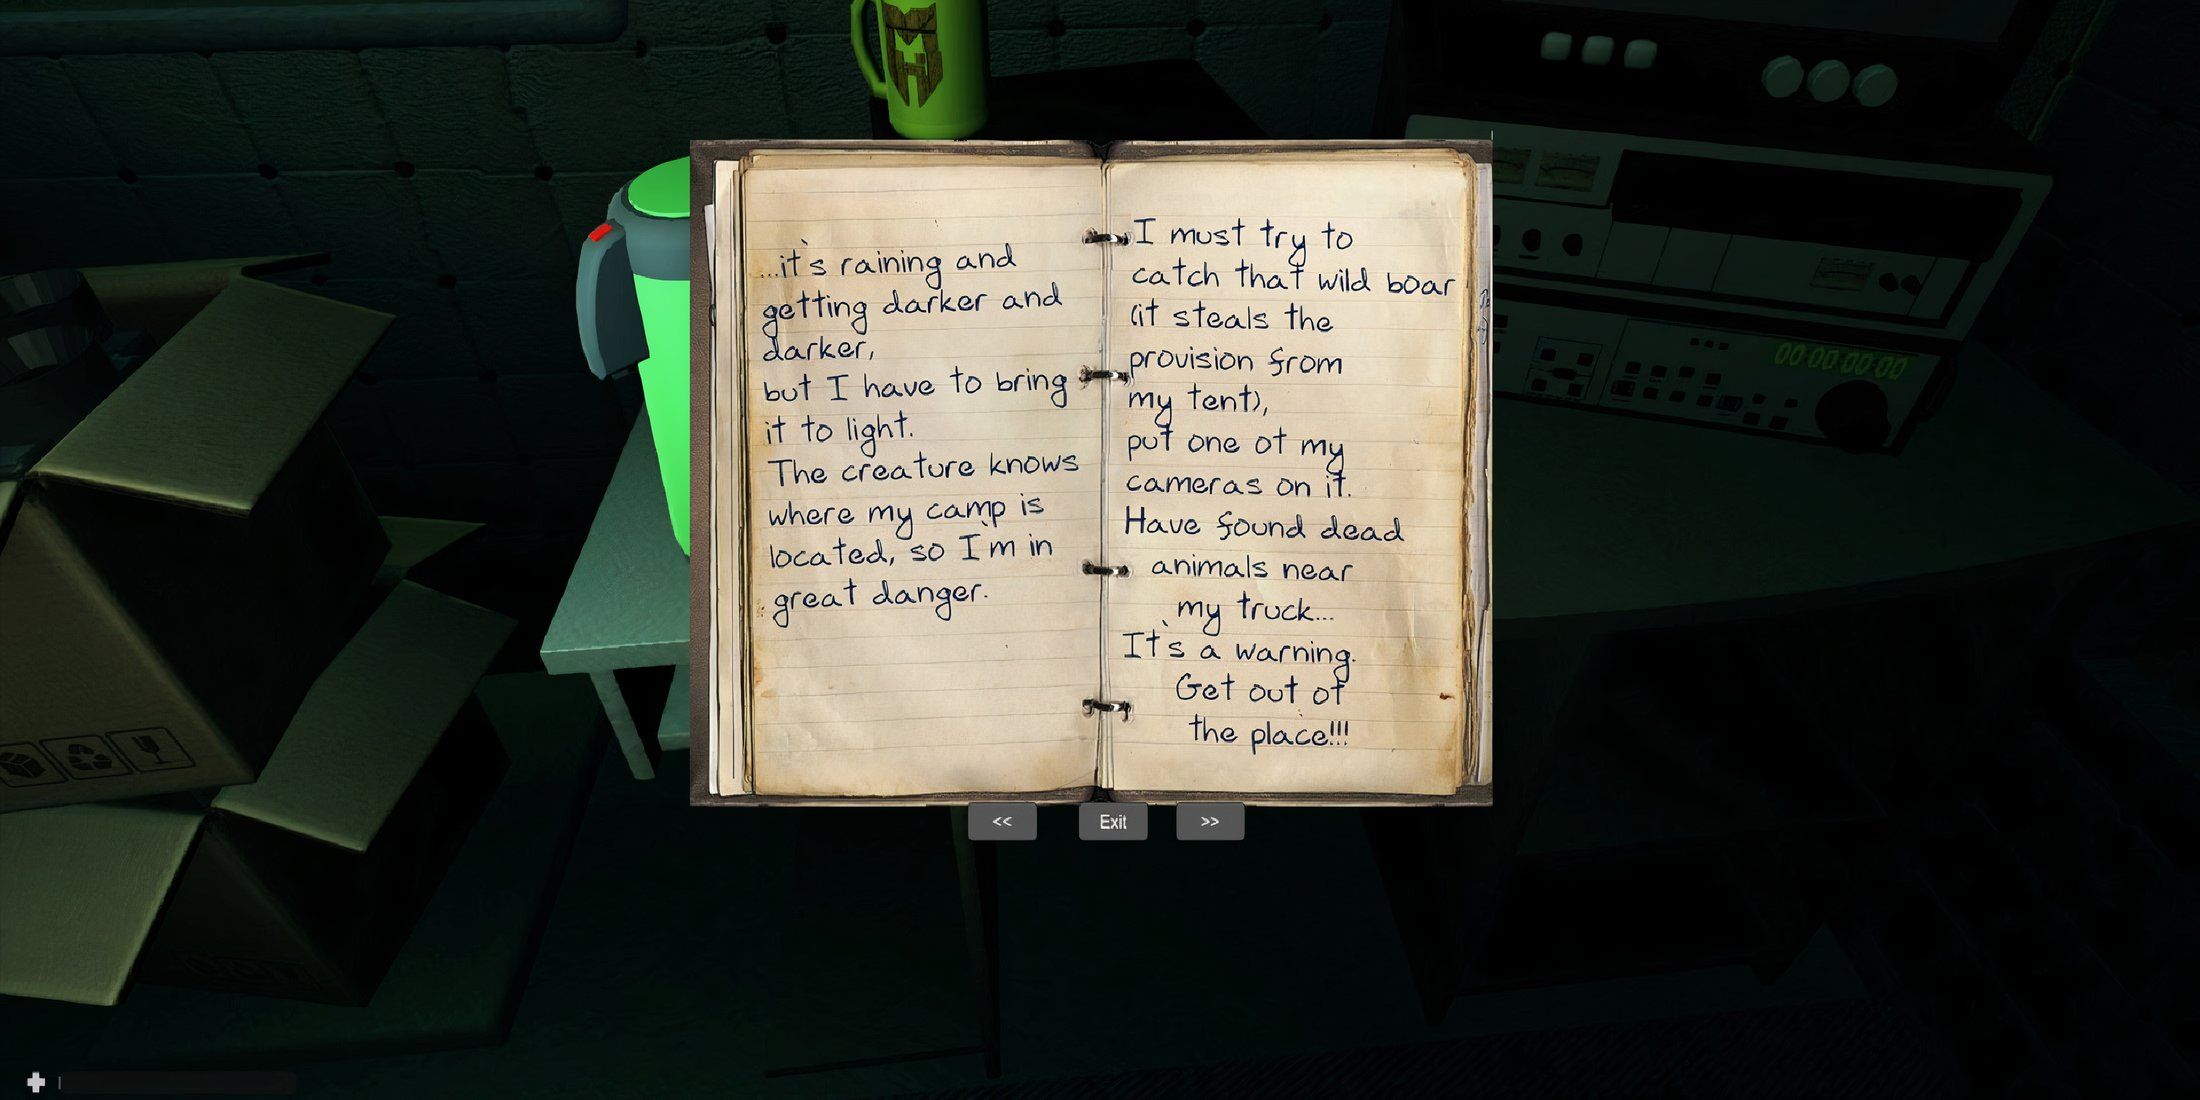 ...it's raining and
getting darker and
darker,
but I have to bring
it to light.
The creature knows
where my camp is
located, so I'm in
great danger.
I must try to
catch that wild boar
(it steals the
provision from
my tent),
put one of my
cameras on it.
Have found dead
animals near
my truck...
It's a warning.
Get out of
the place!!!
<< Exit >>
00:00:00:00